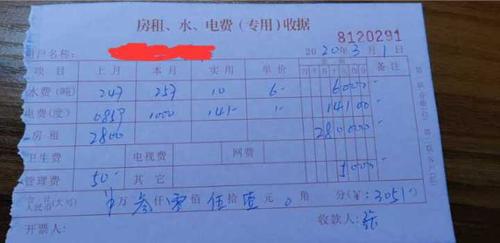 房租、水、电费(专用)收据
8120291
用户名称: 2020年3月1日
项目 上月 本月 实用 单价 金额 备注
水费(吨) 247 257 10 6 60.00
电费(度) 0859 1000 141 1 141.00
房租 2800 2800.00
卫生费 电视费 网费
管理费 50 其它 50.00
人民币(大写) 万叁仟零佰伍拾壹元0角 分(¥:3051)
开票人: 收款人: